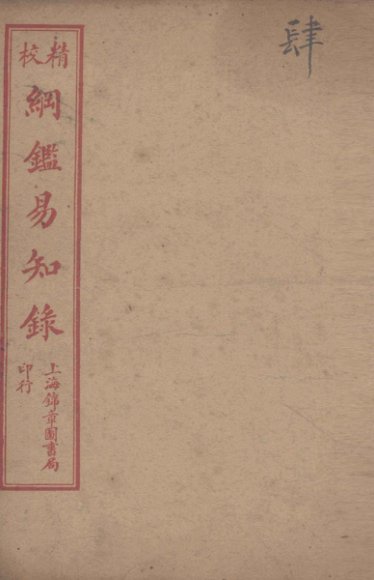 精校
綱鑑易知錄
上海錦章圖書局
印行
肆